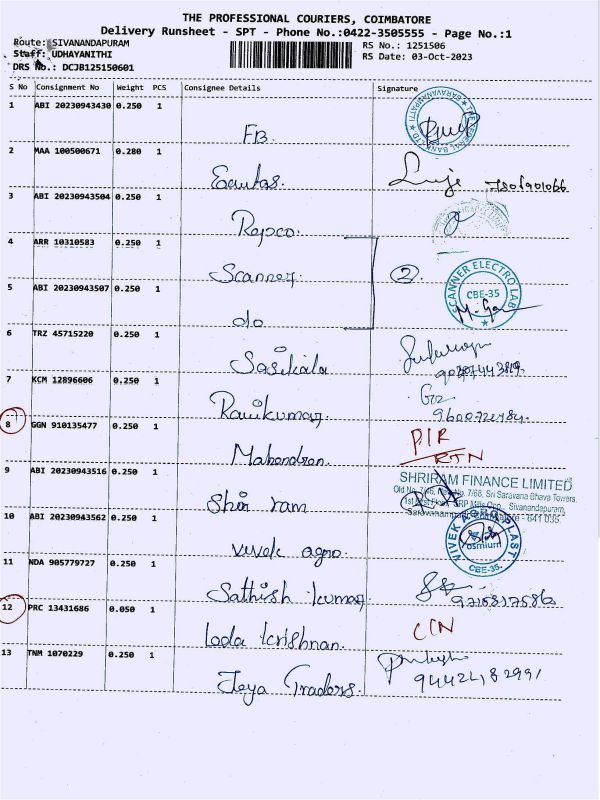 THE PROFESSIONAL COURIERS, COIMBATORE
Delivery Runsheet - SPT - Phone No.:0422-3505555 - Page No.:1
Route: SIVANANDAPURAM
RS No.: 1251506
Staff: UDHAYANITHI
RS Date: 03-Oct-2023
DRS No.: DCJB125150601
S No Consignment No Weight PCS Consignee Details Signature
1 ABI 20230943430 0.250 1
FB.
THE FEDERAL BANK LTD
SARAVANAMPATTI
2 MAA 100500671 0.280 1
Equitas.
3 ABI 20230943504 0.250 1
Repco.
4 ARR 10310583 0.250 1
Scanner.
2
5 ABI 20230943507 0.250 1
do
SCANNER ELECTRO LAB
CBE-35
6 TRZ 45715220 0.250 1
Sasikala
7 KCM 12896606 0.250 1
Ravikumar.
8 GGN 910135477 0.250 1
Mahendran.
DIR
RTN
9 ABI 20230943516 0.250 1
Shri ram
SHRIRAM FINANCE LIMITED
Sri Saravana Bhava Towers,
Sivanandapuram,
641 035.
10 ABI 20230943562 0.250 1
vivek agro.
VIVEK AGRO PLAST
osmium
CBE-35.
11 NDA 905779727 0.250 1
Sathish kumar
9715817586
12 PRC 13431686 0.050 1
Loda krishnan.
C/N
13 TNM 1070229 0.250 1
Jeya Traders.
9442482991